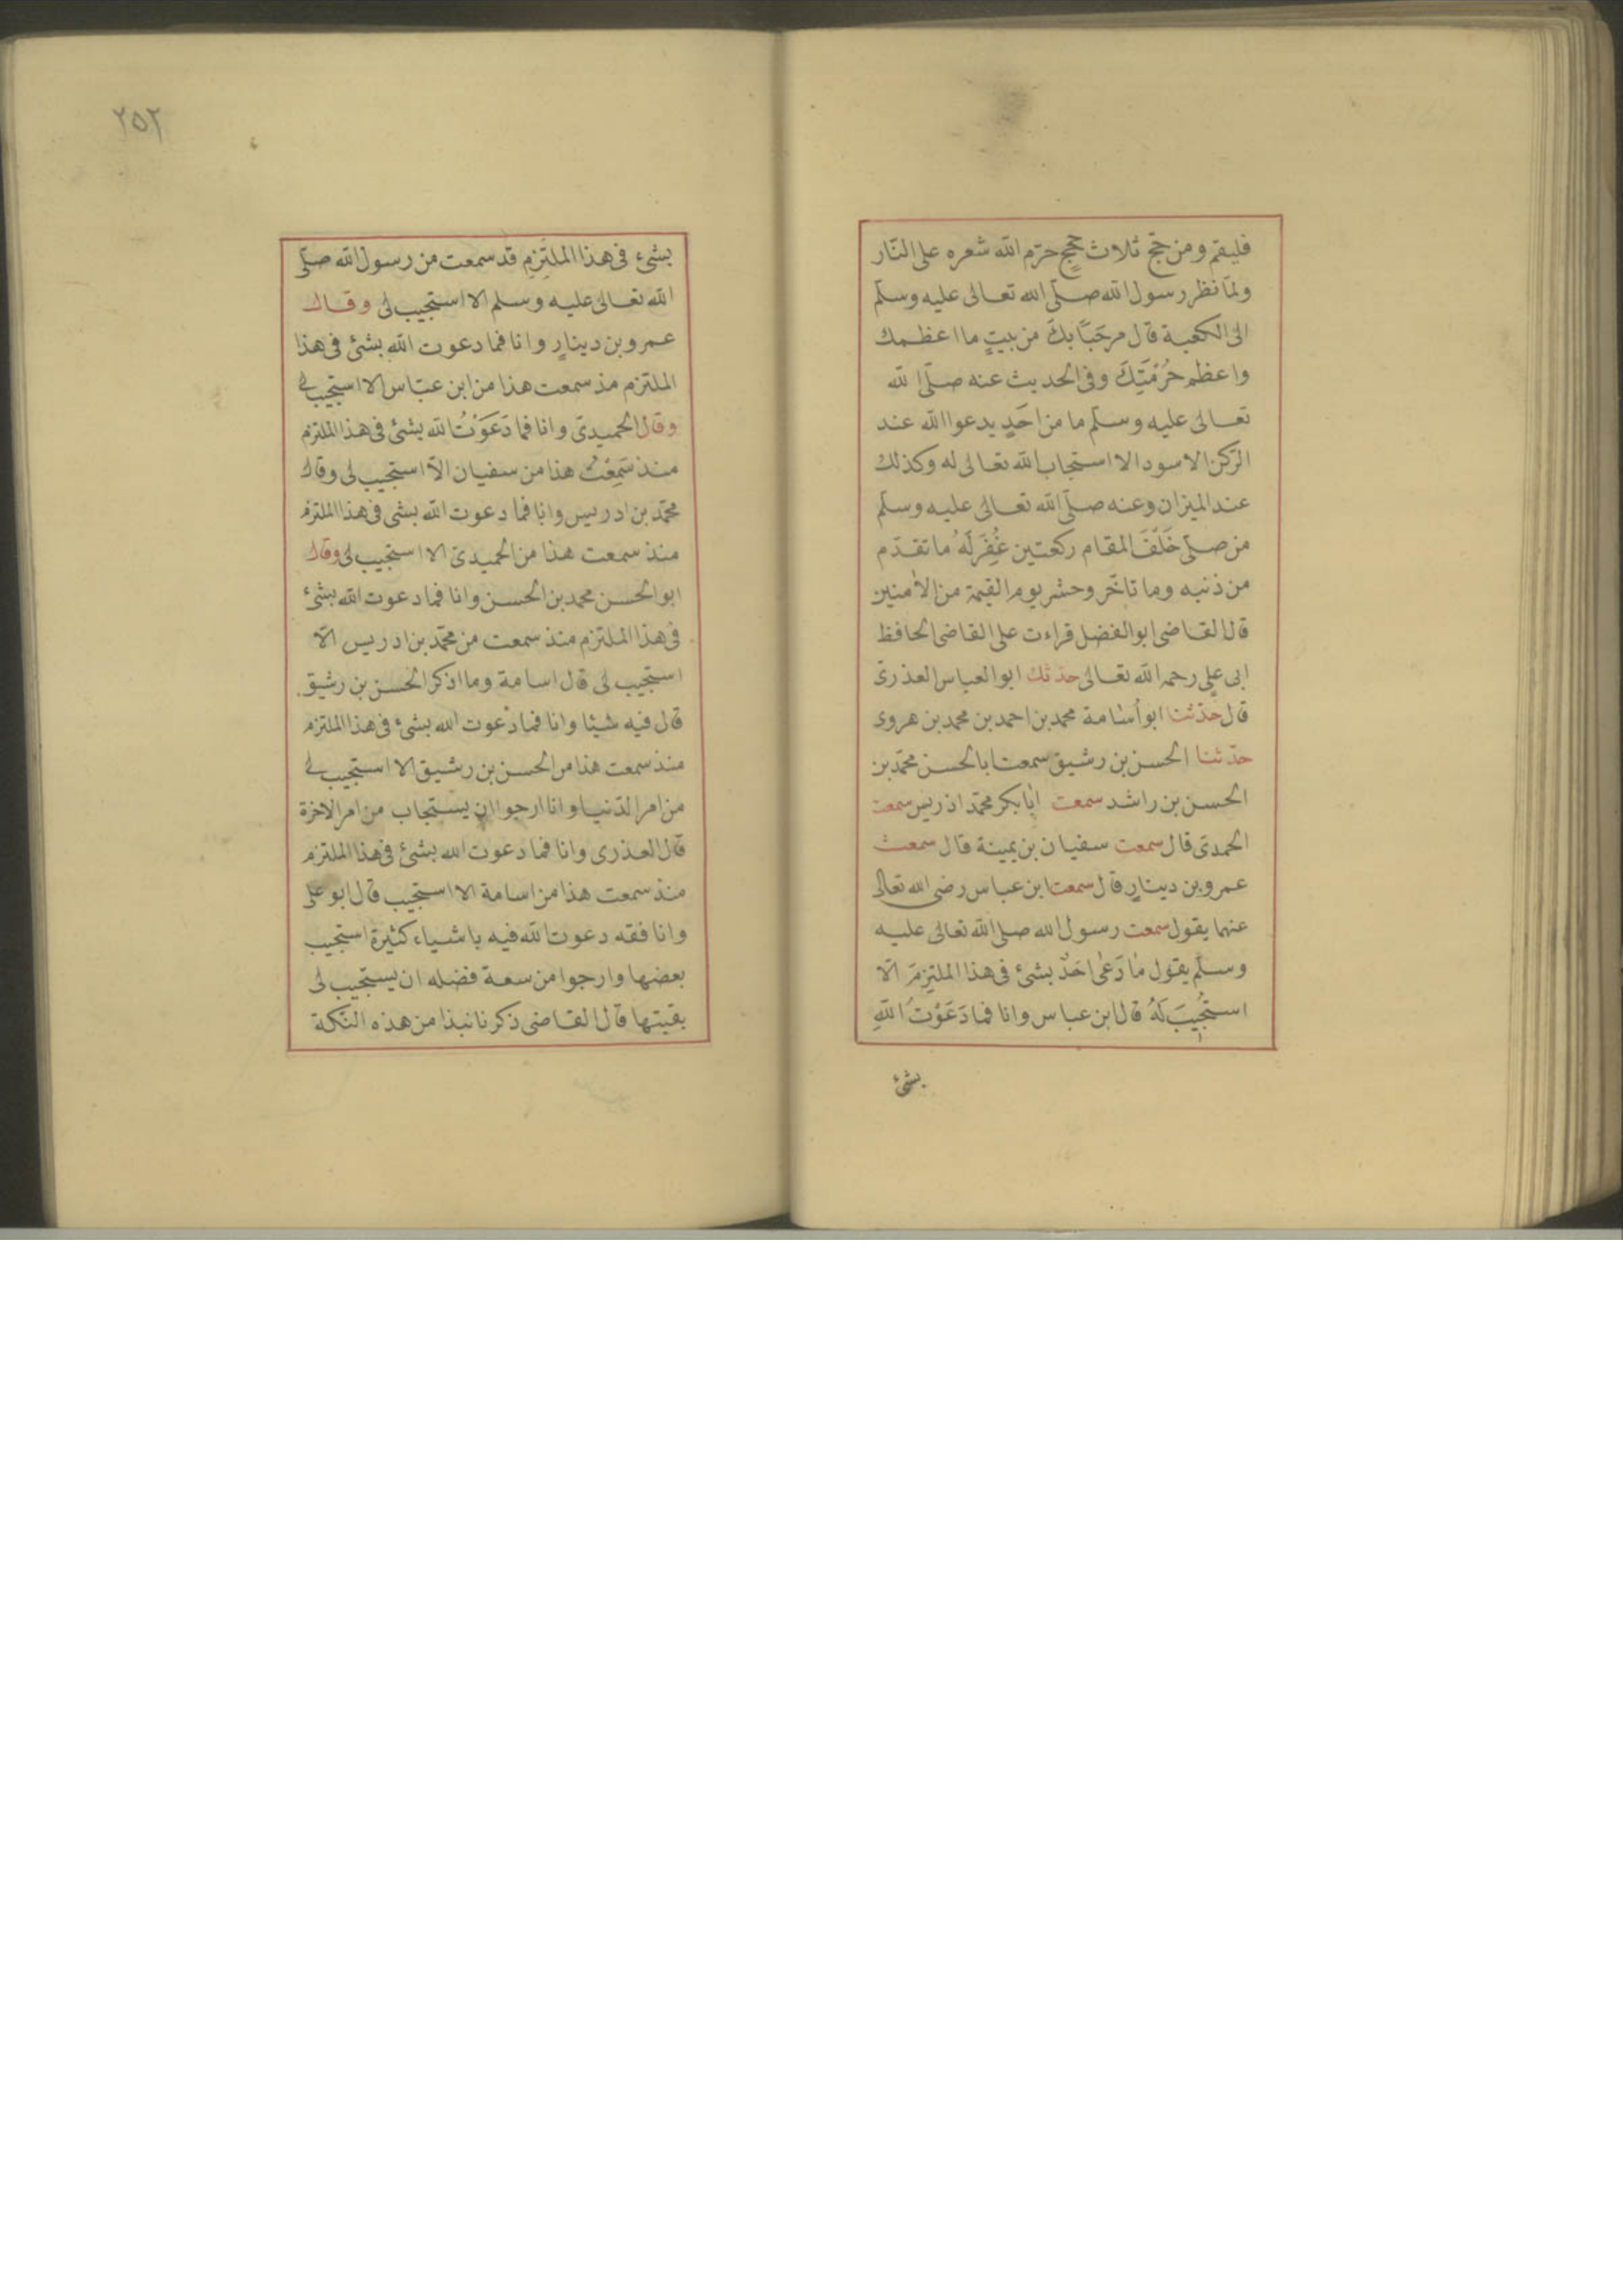 فليقم ومن حجّ ثلاث حججٍ حرّم الله شعره على النّار
ولمّا نظر رسول الله صلّى الله تعالى عليه وسلّم
الى الكعبة قال مرحَبًا بكَ من بيتٍ ما اعظمك
واعظم حُرْمَتِكَ وفى الحديث عنه صلّى الله
تعالى عليه وسلّم ما من احَدٍ يدعوا الله عند
الرّكن الاسود الا استجاب الله تعالى له وكذلك
عند الميزان وعنه صلّى الله تعالى عليه وسلّم
من صلّى خَلْفَ المقام ركعتين غُفِرَ لَهُ ما تقدّم
من ذنبه وما تاخّر وحشر يوم القيمة من الامنين
قال القاضى ابو الفضل قراءت على القاضى الحافظ
ابى على رحمه الله تعالى حدثك ابو العباس العذرى
قال حدّثنا ابو أسامة محمد بن احمد بن محمد بن هروى
حدّثنا الحسن بن رشيق سمعت ابا الحسن محمّد بن
الحسن بن راشد سمعت ابا بكر محمّد ادريس سمعت
الحمدى قال سمعت سفيان بن يمينة قال سمعت
عمرو بن دينارٍ قال سمعت ابن عباس رضى الله تعالى
عنهما يقول سمعت رسول الله صلى الله تعالى عليه
وسلّم يقول ما دَعٰى احَدٌ بشئ فى هذا الملتزمَ الّا
استُجِيبَ لَهُ قال ابن عباس وانا فما دَعَوْتُ اللهِ
بشئ
٢٥٢
بشئ فى هذا الملتزِم قد سمعت من رسول الله صلّى
الله تعالى عليه وسلم الا استجيب لى وقال
عمرو بن دينارٍ وانا فما دعوت الله بشئ فى هذا
الملتزم مذ سمعت هذا من ابن عبّاس الا استجيب لى
وقال الحميدىّ وانا فما دَعَوْتُ الله بشئ فى هذا الملتزم
منذ سَمِعْتُ هذا من سفيان الّا استجيب لى وقال
محمّد بن ادريس وانا فما دعوت الله بشى فى هذا الملتزم
منذ سمعت هذا من الحميدىّ الا استجيب لى وقال
ابو الحسن محمد بن الحسن وانا فما دعوت الله بشئ
فى هذا الملتزم منذ سمعت من محمّد بن ادريس الّا
استجيب لى قال اسامة وما اذكر الحسن بن رشيق
قال فيه شيئا وانا فما دعوت الله بشئ فى هذا الملتزم
منذ سمعت هذا من الحسن بن رشيق الا استجيب لى
من امر الدّنيا وانا ارجوا ان يستجاب من امر الاخرة
قال العذرى وانا فما دعوت الله بشئ فى هذا الملتزم
منذ سمعت هذا من اسامة الا استجيب قال ابو على
وانا فقه دعوت الله فيه باشياء كثيرة استجيب
بعضها وارجوا من سعة فضله ان يستجيب لى
بقيتها قال القاضى ذكرنا نبذا من هذه النّكة